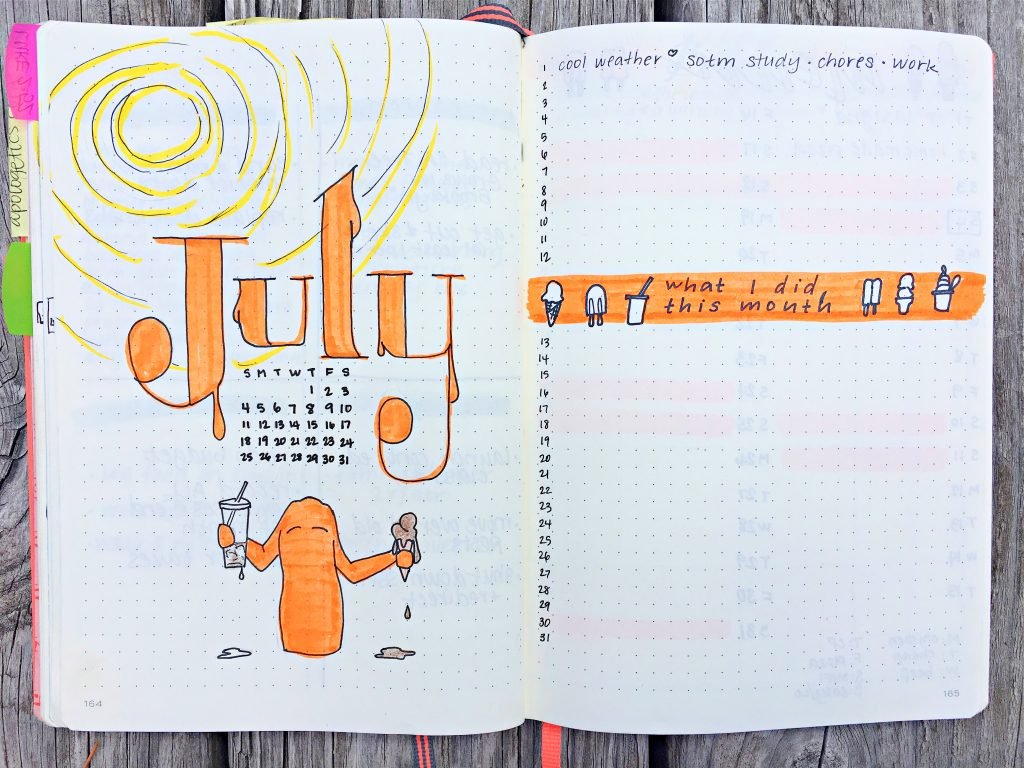 apologetics
July
S M T W T F S
1 2 3
4 5 6 7 8 9 10
11 12 13 14 15 16 17
18 19 20 21 22 23 24
25 26 27 28 29 30 31
164
1 cool weather ♡ sotm study · chores · work
2
3
4
5
6
7
8
9
10
11
12
what I did
this month
13
14
15
16
17
18
19
20
21
22
23
24
25
26
27
28
29
30
31
165